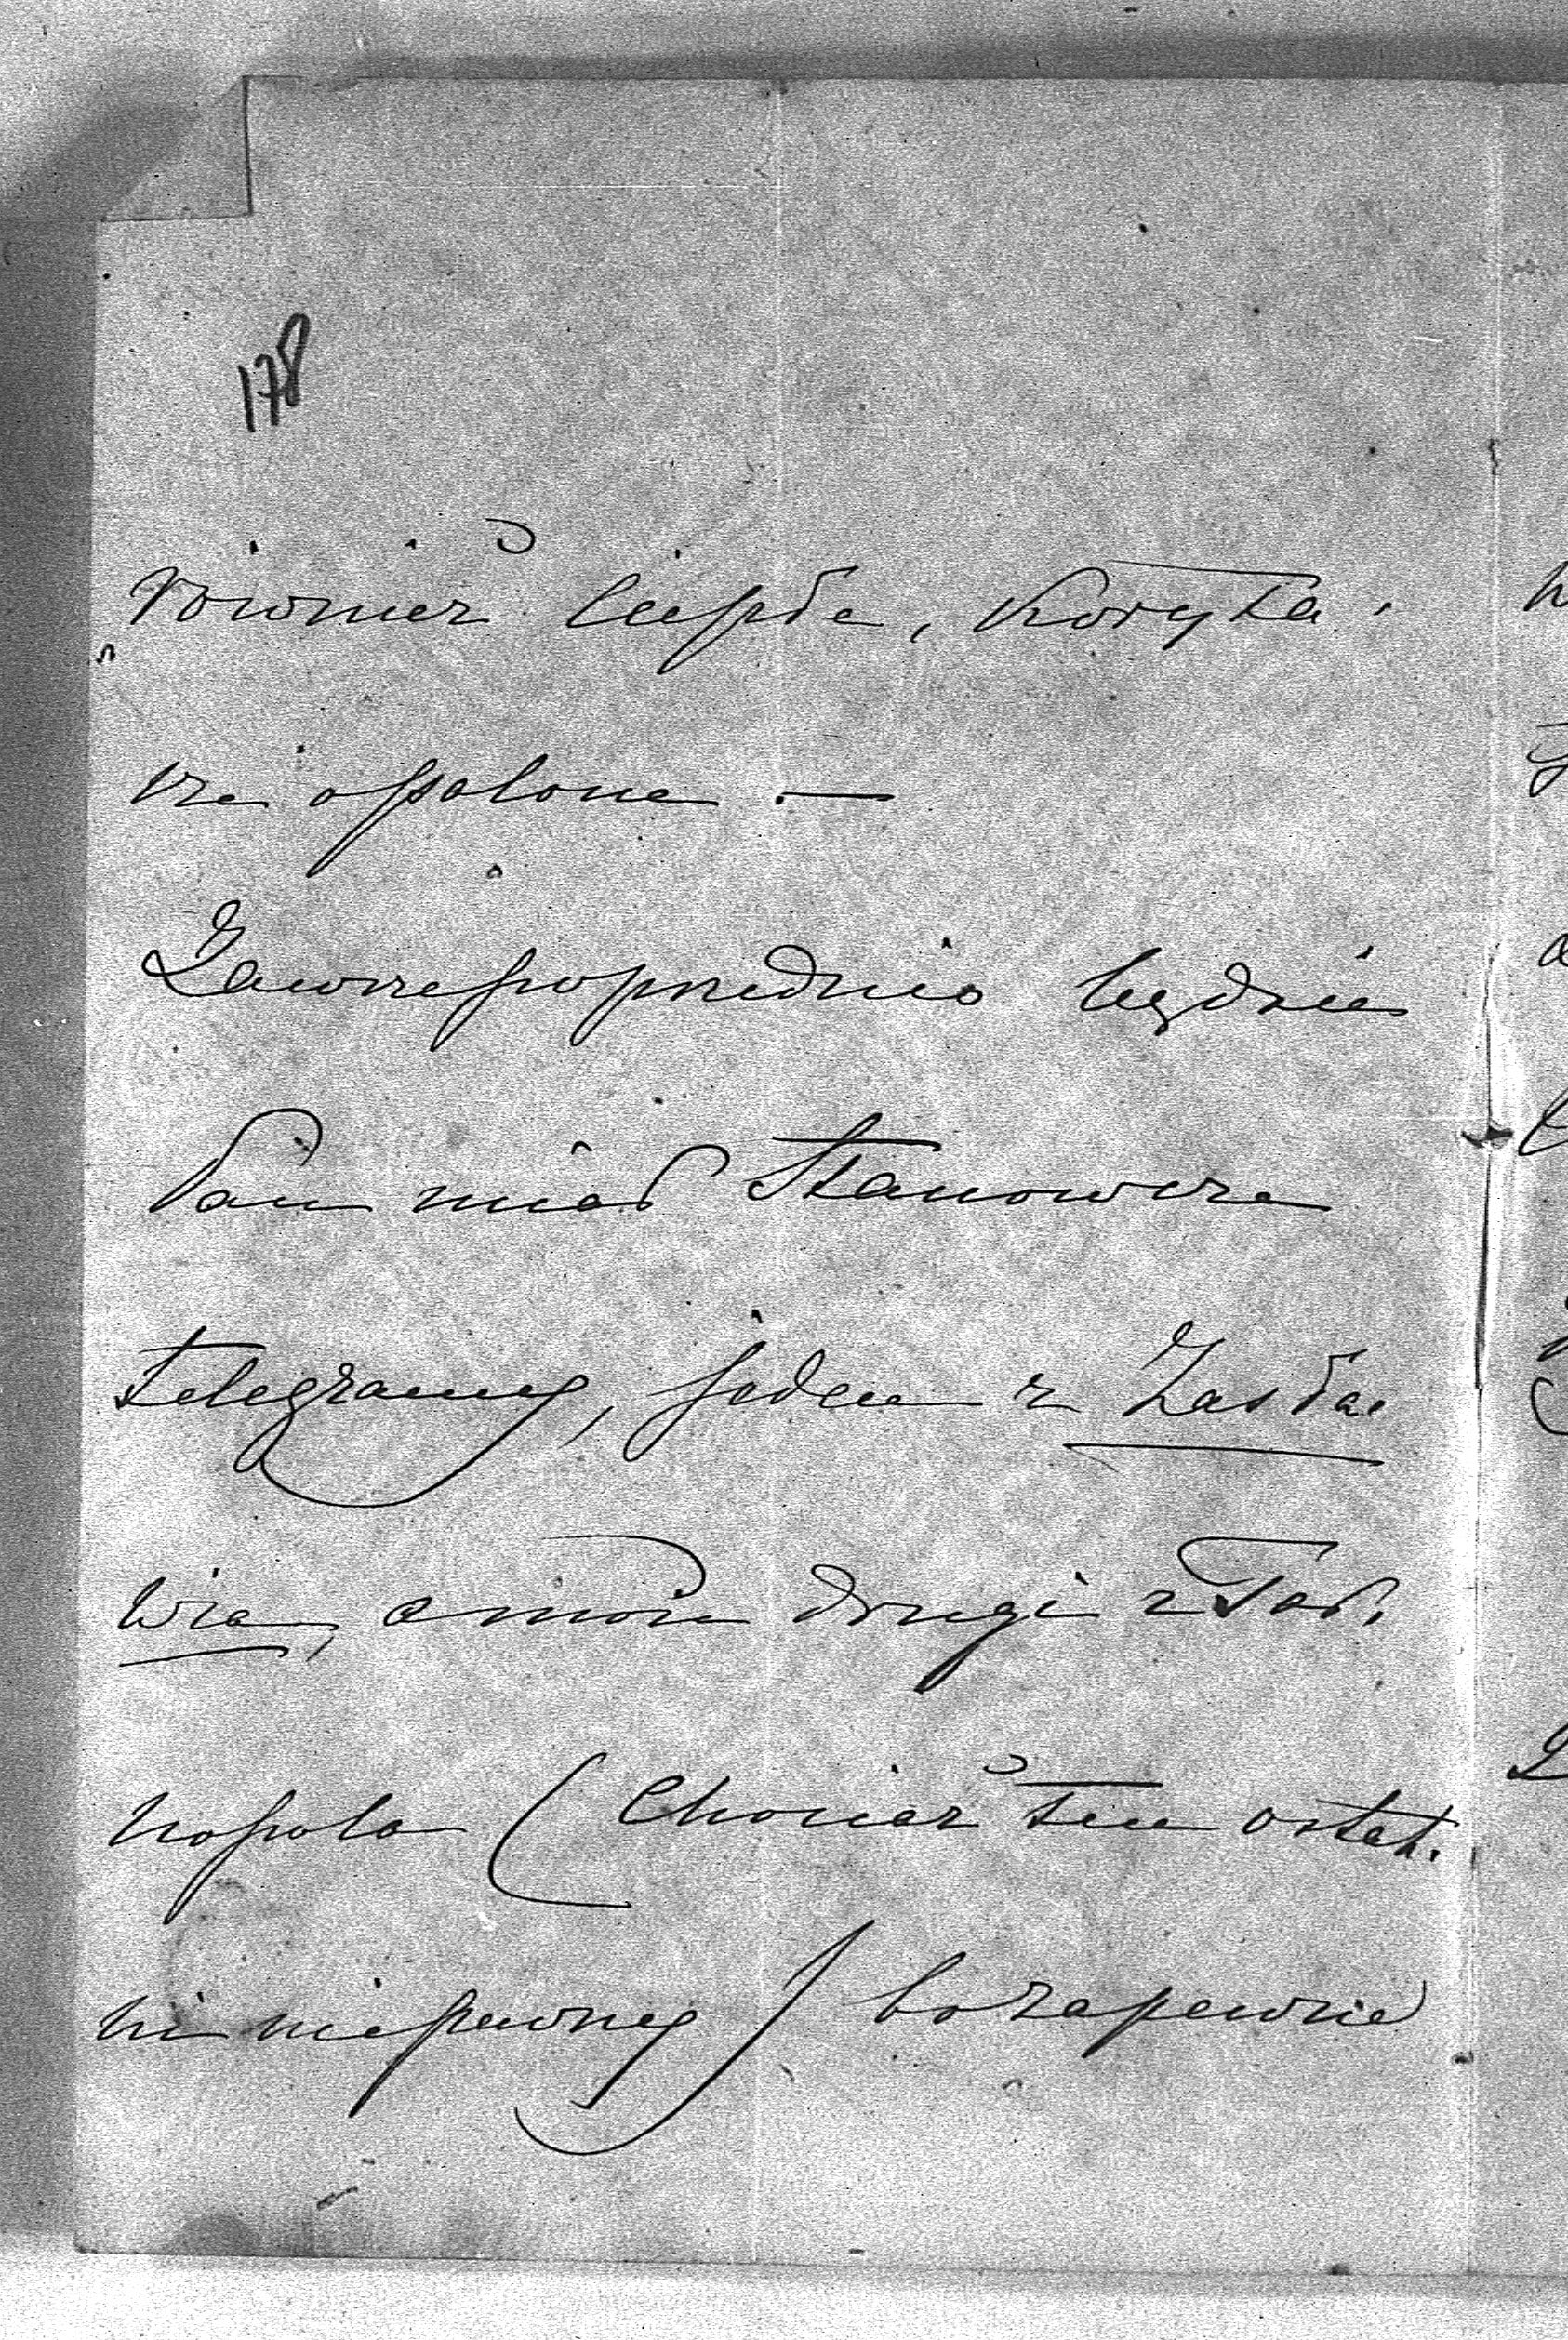 178
również ciepłe, koryta-
rze opalone. —
Zawsze poprzednio będzie
Pan miał stanowcze
telegramy, jeden z Zasła-
wia, a może drugi z Tar-
nopola (chociaż ten ostat-
ni niepewny) bo zapewne